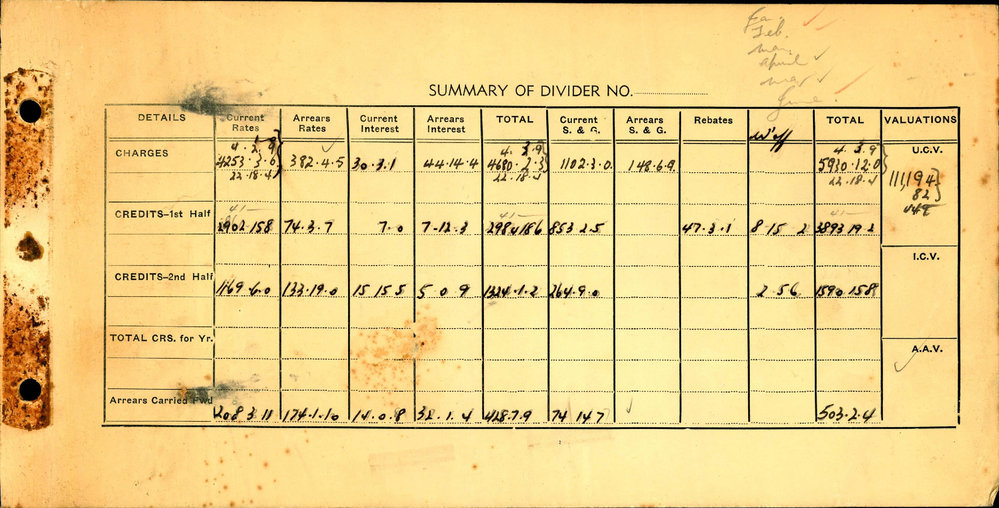 Ja.
Feb.
Mar.
April
May
June.
SUMMARY OF DIVIDER NO.
DETAILS Current Rates Arrears Rates Current Interest Arrears Interest TOTAL Current S. & G. Arrears S. & G. Rebates W'off TOTAL VALUATIONS
4. 3. 9 4. 3. 9 4. 3. 9 U.C.V.
CHARGES 4253.3.6 382.4.5 30.3.1 44.14.4 1102.3.0 148.6.9 5930.12.0
22.18.4 22.18.4 22.18.4 111,194
82
CREDITS—1st Half
2902 15 8 74.3.7 7.0 7.12.3 2984 18 6 853 2.5 47.3.1 8 15 2 3893 19 2
I.C.V.
CREDITS—2nd Half
1169.6.0 133.19.0 15 15 5 5 0 9 1324.1.2 264.9.0 2.5 6 1590.15 8
TOTAL CRS. for Yr. A.A.V.
Arrears Carried Fwd
208 3 11 174.1.10 14.0.8 32.1.4 428.7.9 74 14 7 503.2.4